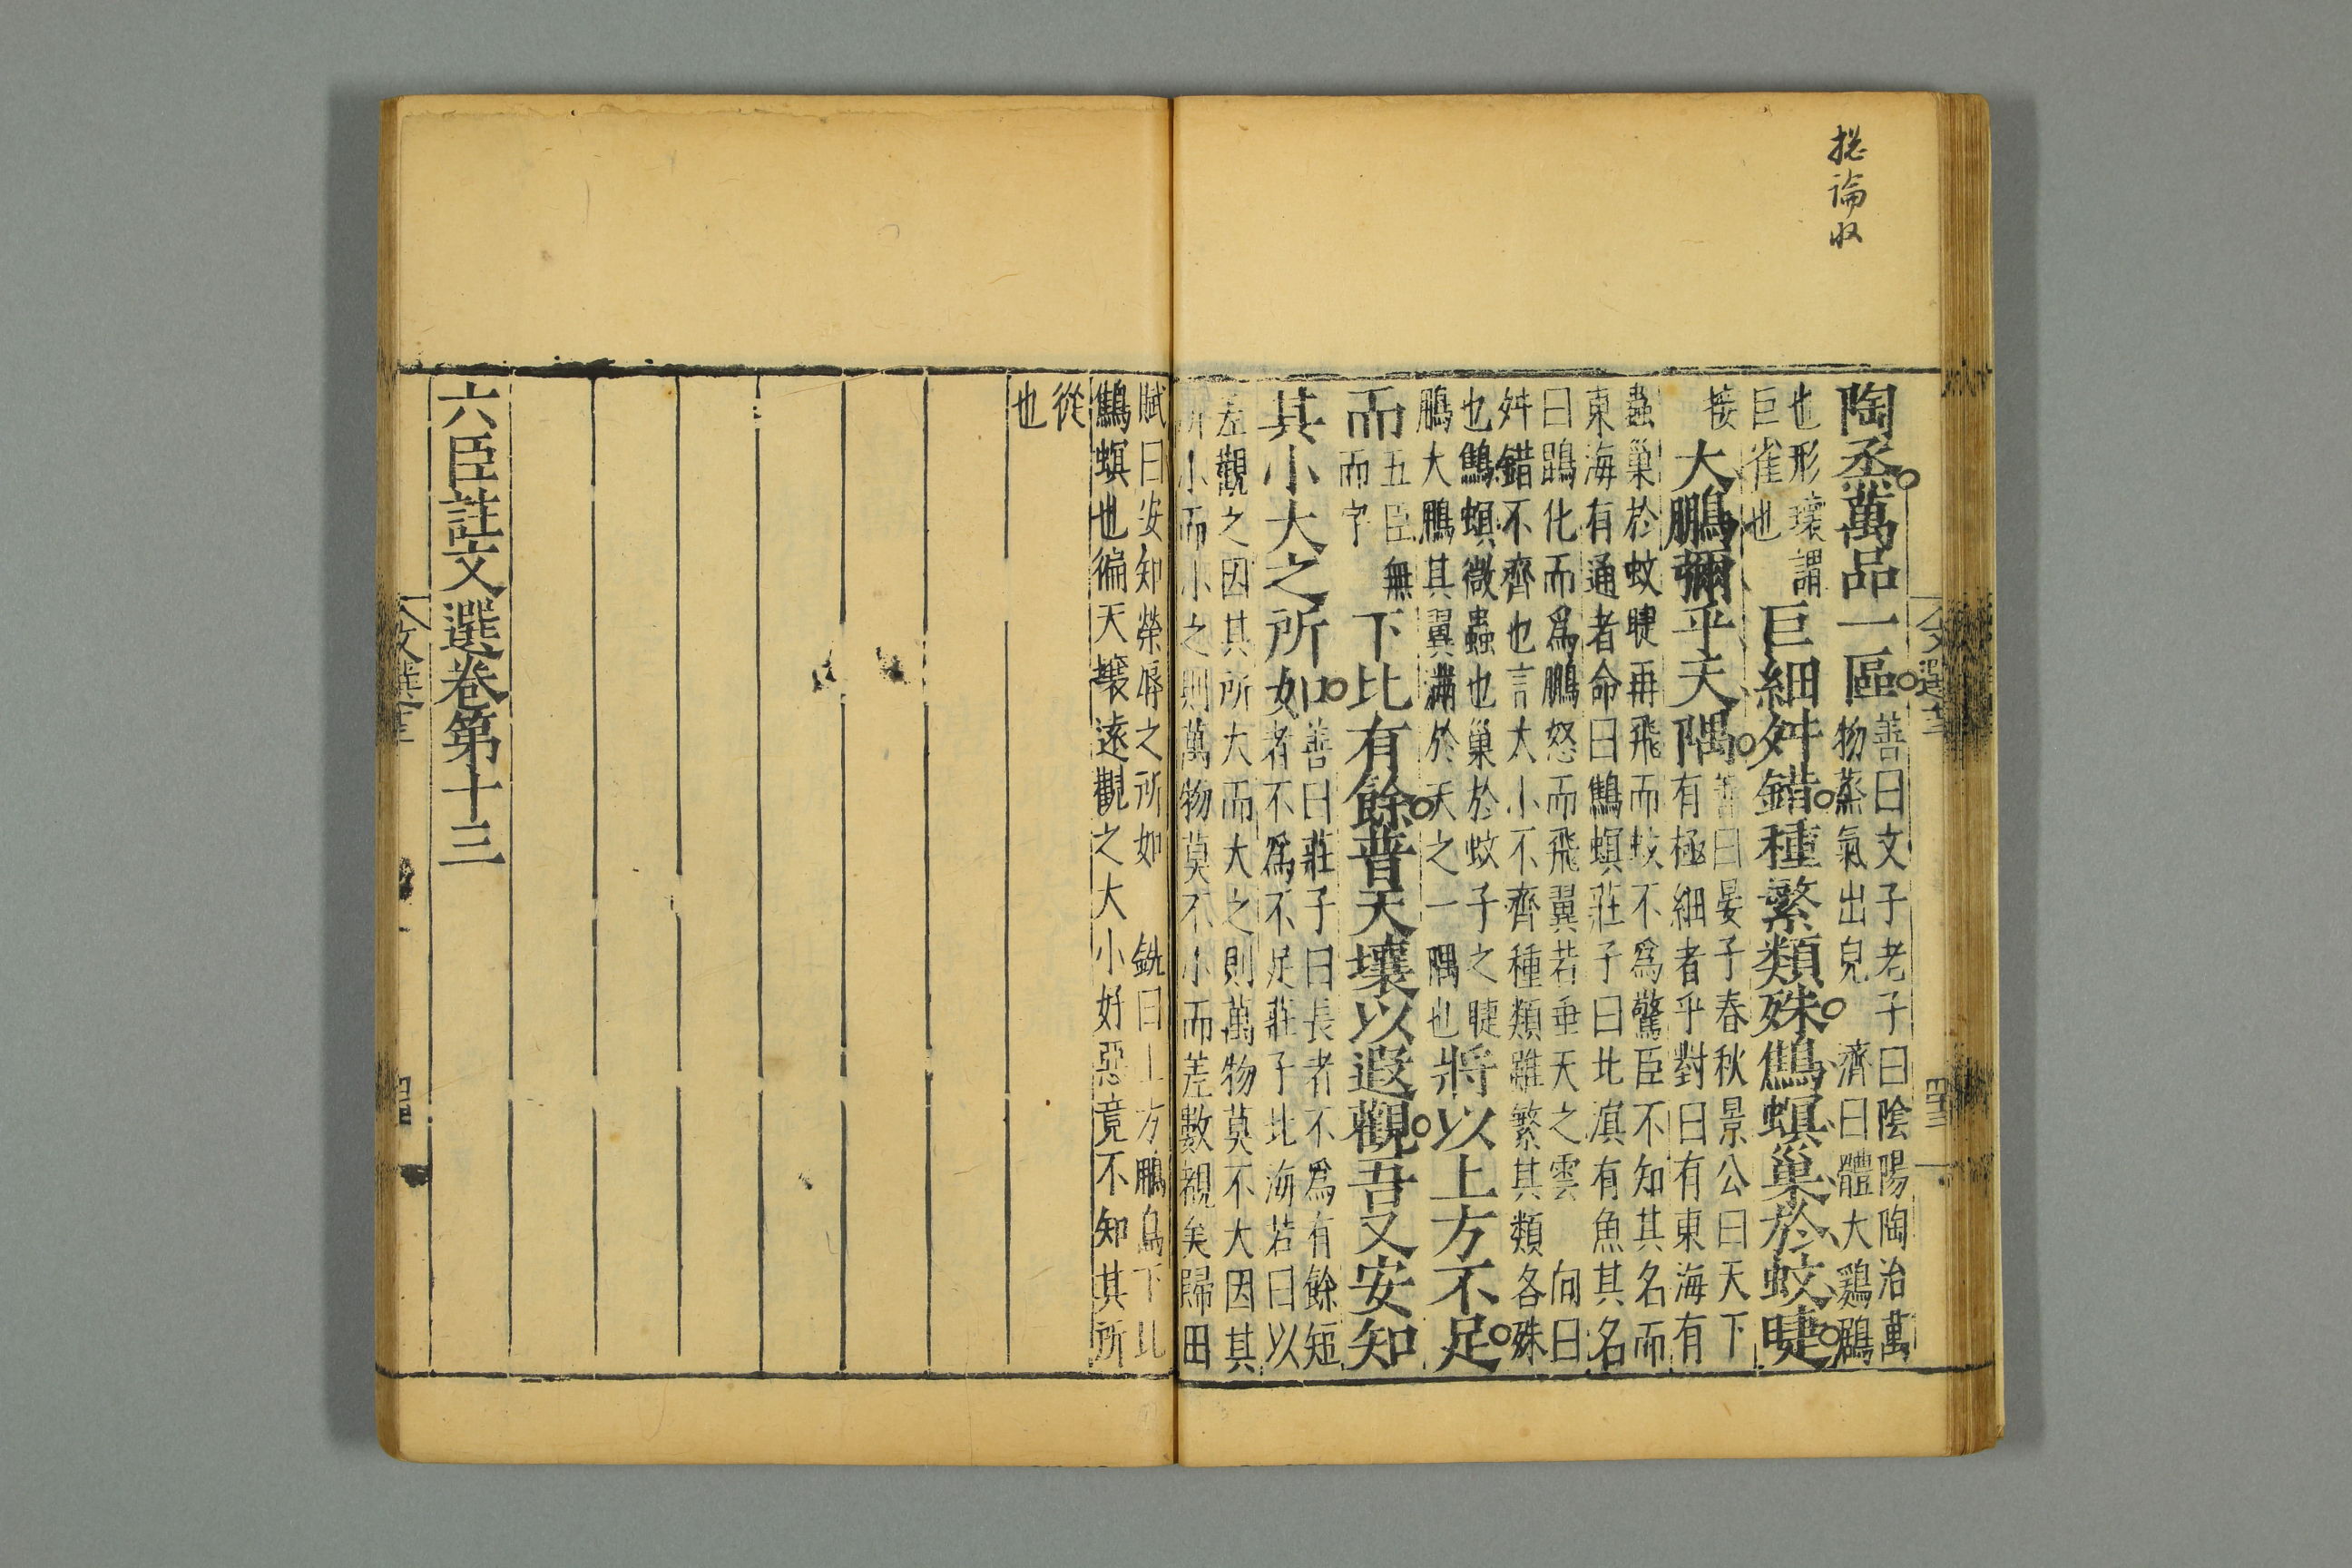 捴論収
陶烝萬品一區
善曰文子老子曰陰陽陶冶萬
物蒸氣出皃 濟曰體大鷄鶡
也形瓌謂
巨雀也
巨細舛錯種繁類殊鷦螟巢於蚊睫
接
大鵬彌乎天隅
善曰晏子春秋景公曰天下
有極細者乎對曰有東海有
蟲巢於蚊睫再飛而蚊不爲驚臣不知其名而
東海有通者命曰鷦螟莊子曰北溟有魚其名
曰鵾化而爲鵬怒而飛翼若垂天之雲 向曰
舛錯不齊也言大小不齊種類雖繁其類各殊
也鷦螟微蟲也巢於蚊子之睫
鵬大鵬其翼滿於天之一隅也
將以上方不足
而
五臣無
而字
下比有餘普天壤以遐觀吾又安知
其小大之所如
善曰莊子曰長者不爲有餘短
者不爲不足莊子北海若曰以
差觀之因其所大而大之則萬物莫不大因其
所小而小之則萬物莫不小而差數覩矣歸田
賦曰安知榮辱之所如 銑曰上方鵬鳥下比
鷦螟也徧天壤遠觀之大小好惡竟不知其所
從
也
六臣註文選卷第十三